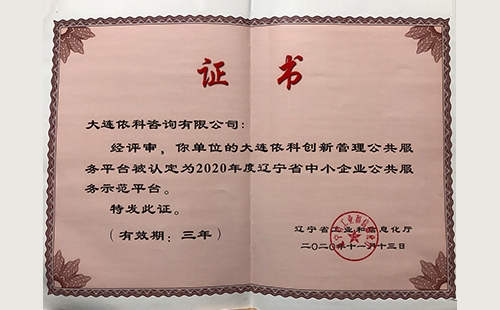 证书
大连依科咨询有限公司：
经评审，你单位的大连依科创新管理公共服
务平台被认定为2020年度辽宁省中小企业公共服
务示范平台。
特发此证。
（有效期：三年）
辽宁省工业和信息化厅
二〇二〇年十一月十三日